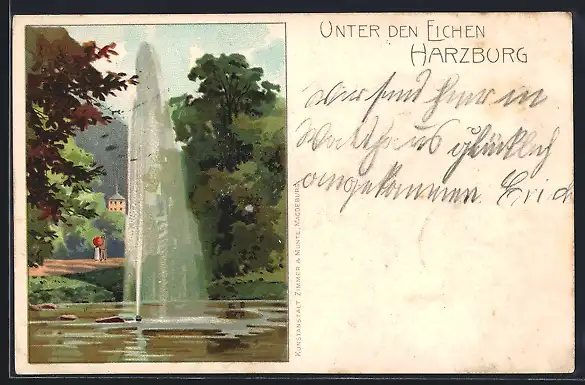 UNTER DEN EICHEN
HARZBURG
sind hier in
glücklich
angekommen. Erich
KUNSTANSTALT ZIMMER & MUNTE, MAGDEBURG